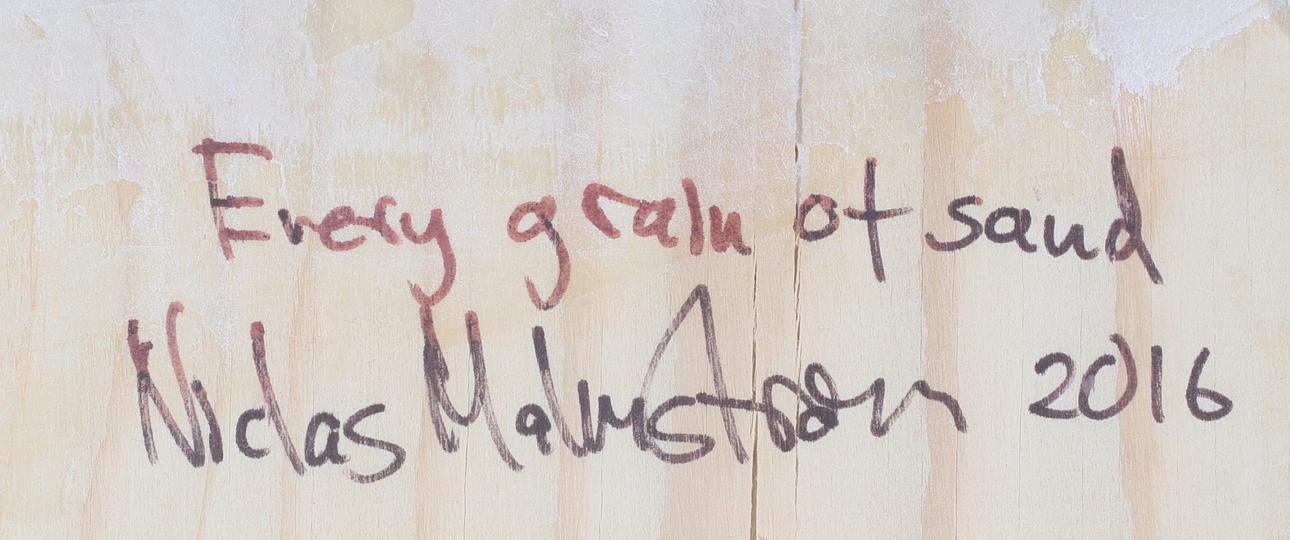 Every grain of sand
Niclas Malmström 2016